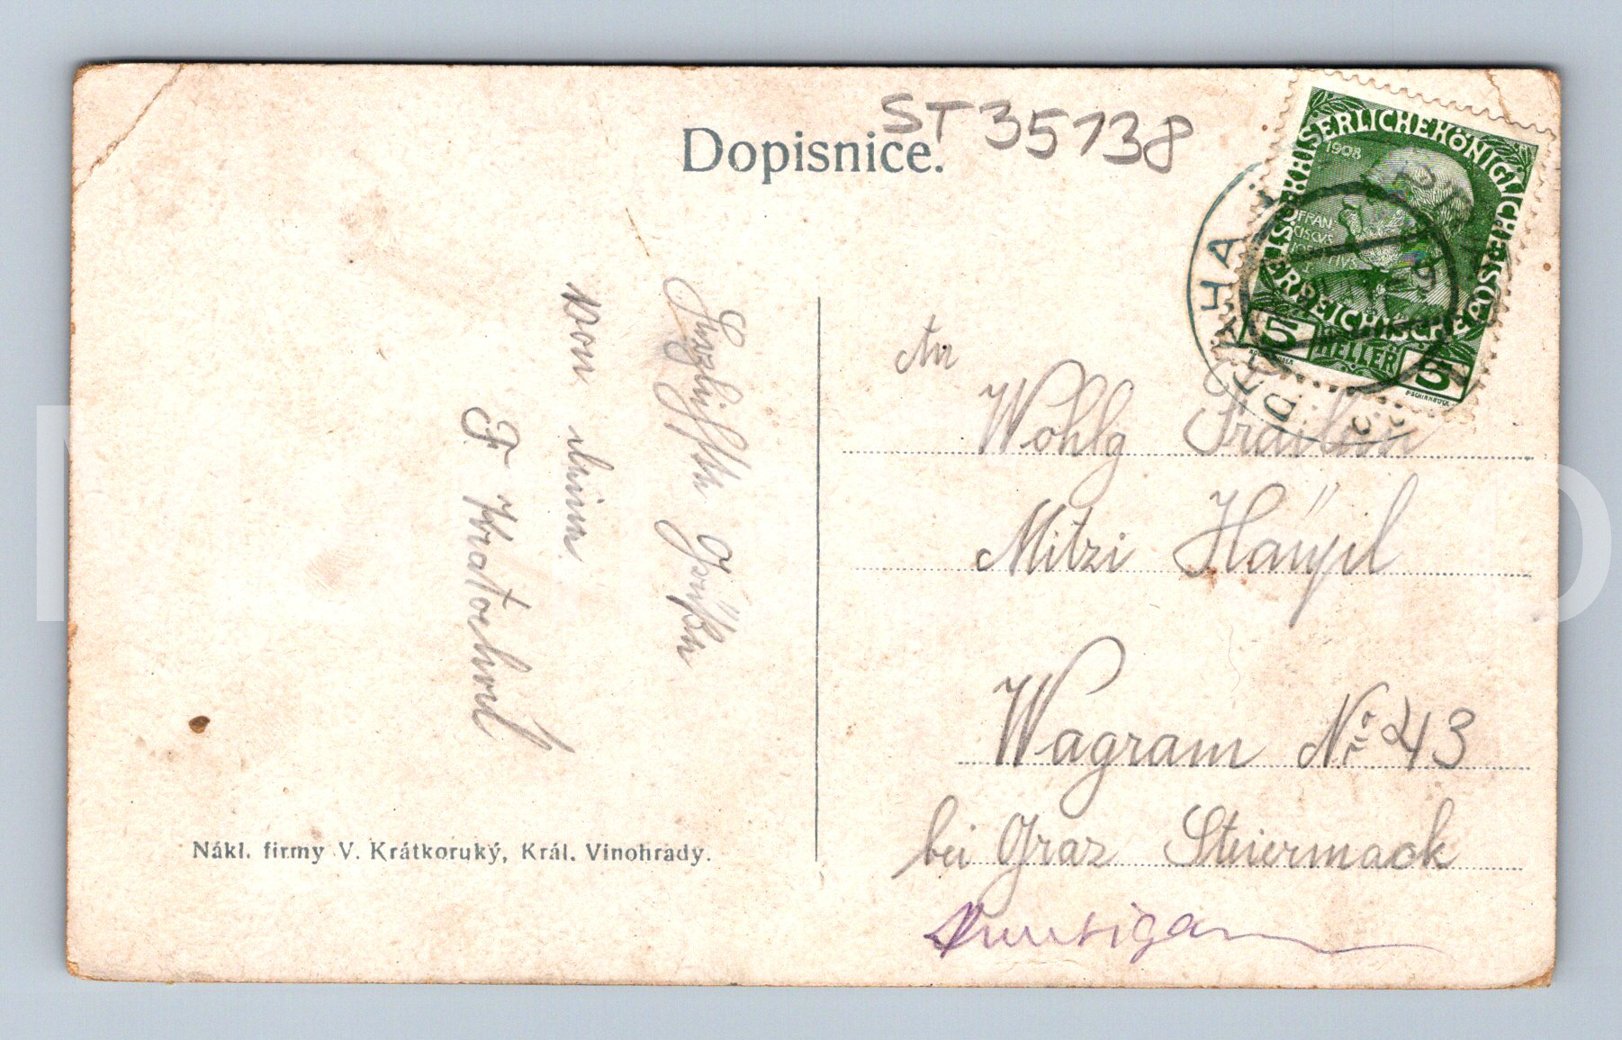 Dopisnice.
ST35738
KAISERLICHE KÖNIGLICHE ÖSTERREICHISCHE POST
1908
FRAN
CISCVS
5 HELLER 5
PRAHA
Herzlichste Grüße
von deinem
F Kratochwil
An
Wohlg Fräulein
Mitzi
Wagram No 43
bei Graz Steiermark
Nákl. firmy V. Krátkoruký, Král. Vinohrady.